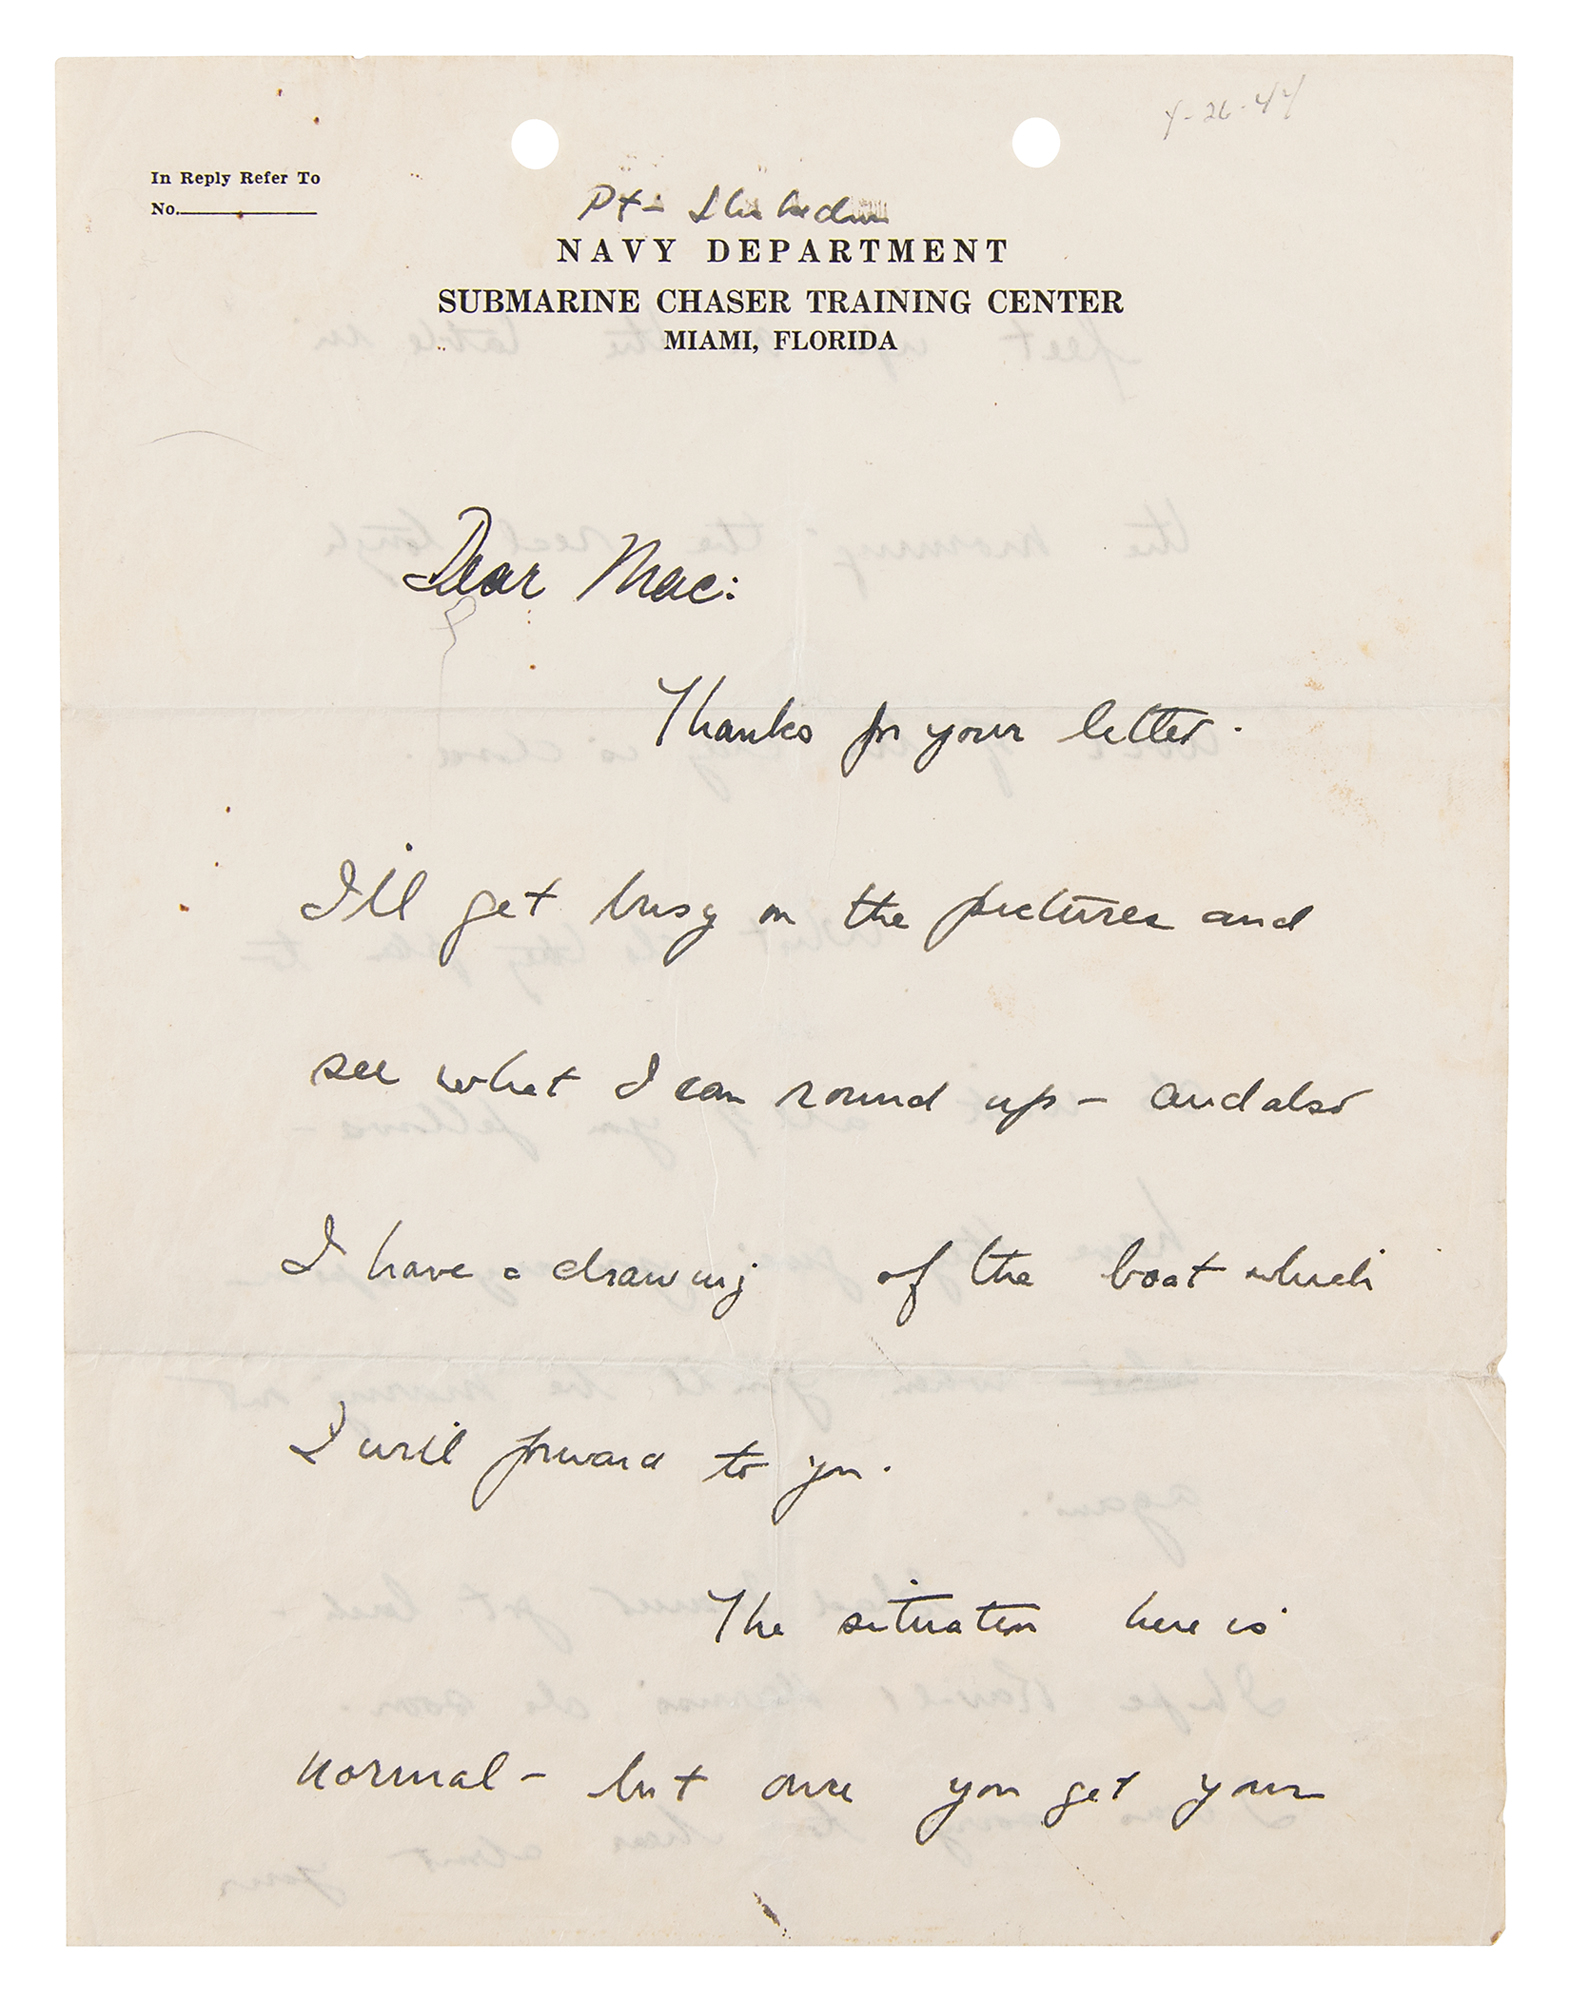 4-26-44
In Reply Refer To
No.
PT-
NAVY DEPARTMENT
SUBMARINE CHASER TRAINING CENTER
MIAMI, FLORIDA
Dear Mac:
Thanks for your letter.
I'll get busy on the pictures and
see what I can round up - and also
I have a drawing of the boat which
I will forward to you.
The situation here is
normal - but once you get your